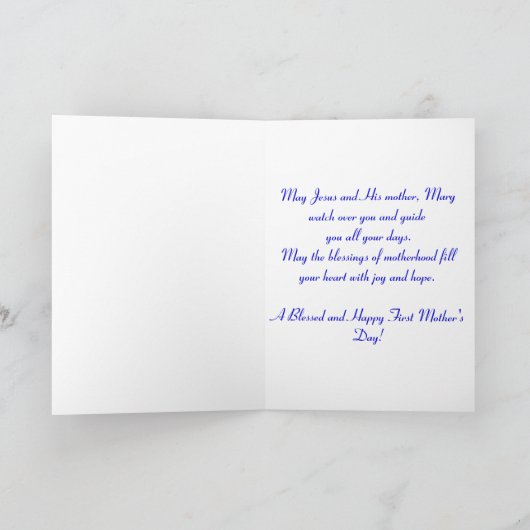 May Jesus and His mother, Mary
watch over you and guide
you all your days.
May the blessings of motherhood fill
your heart with joy and hope.
A Blessed and Happy First Mother's
Day!